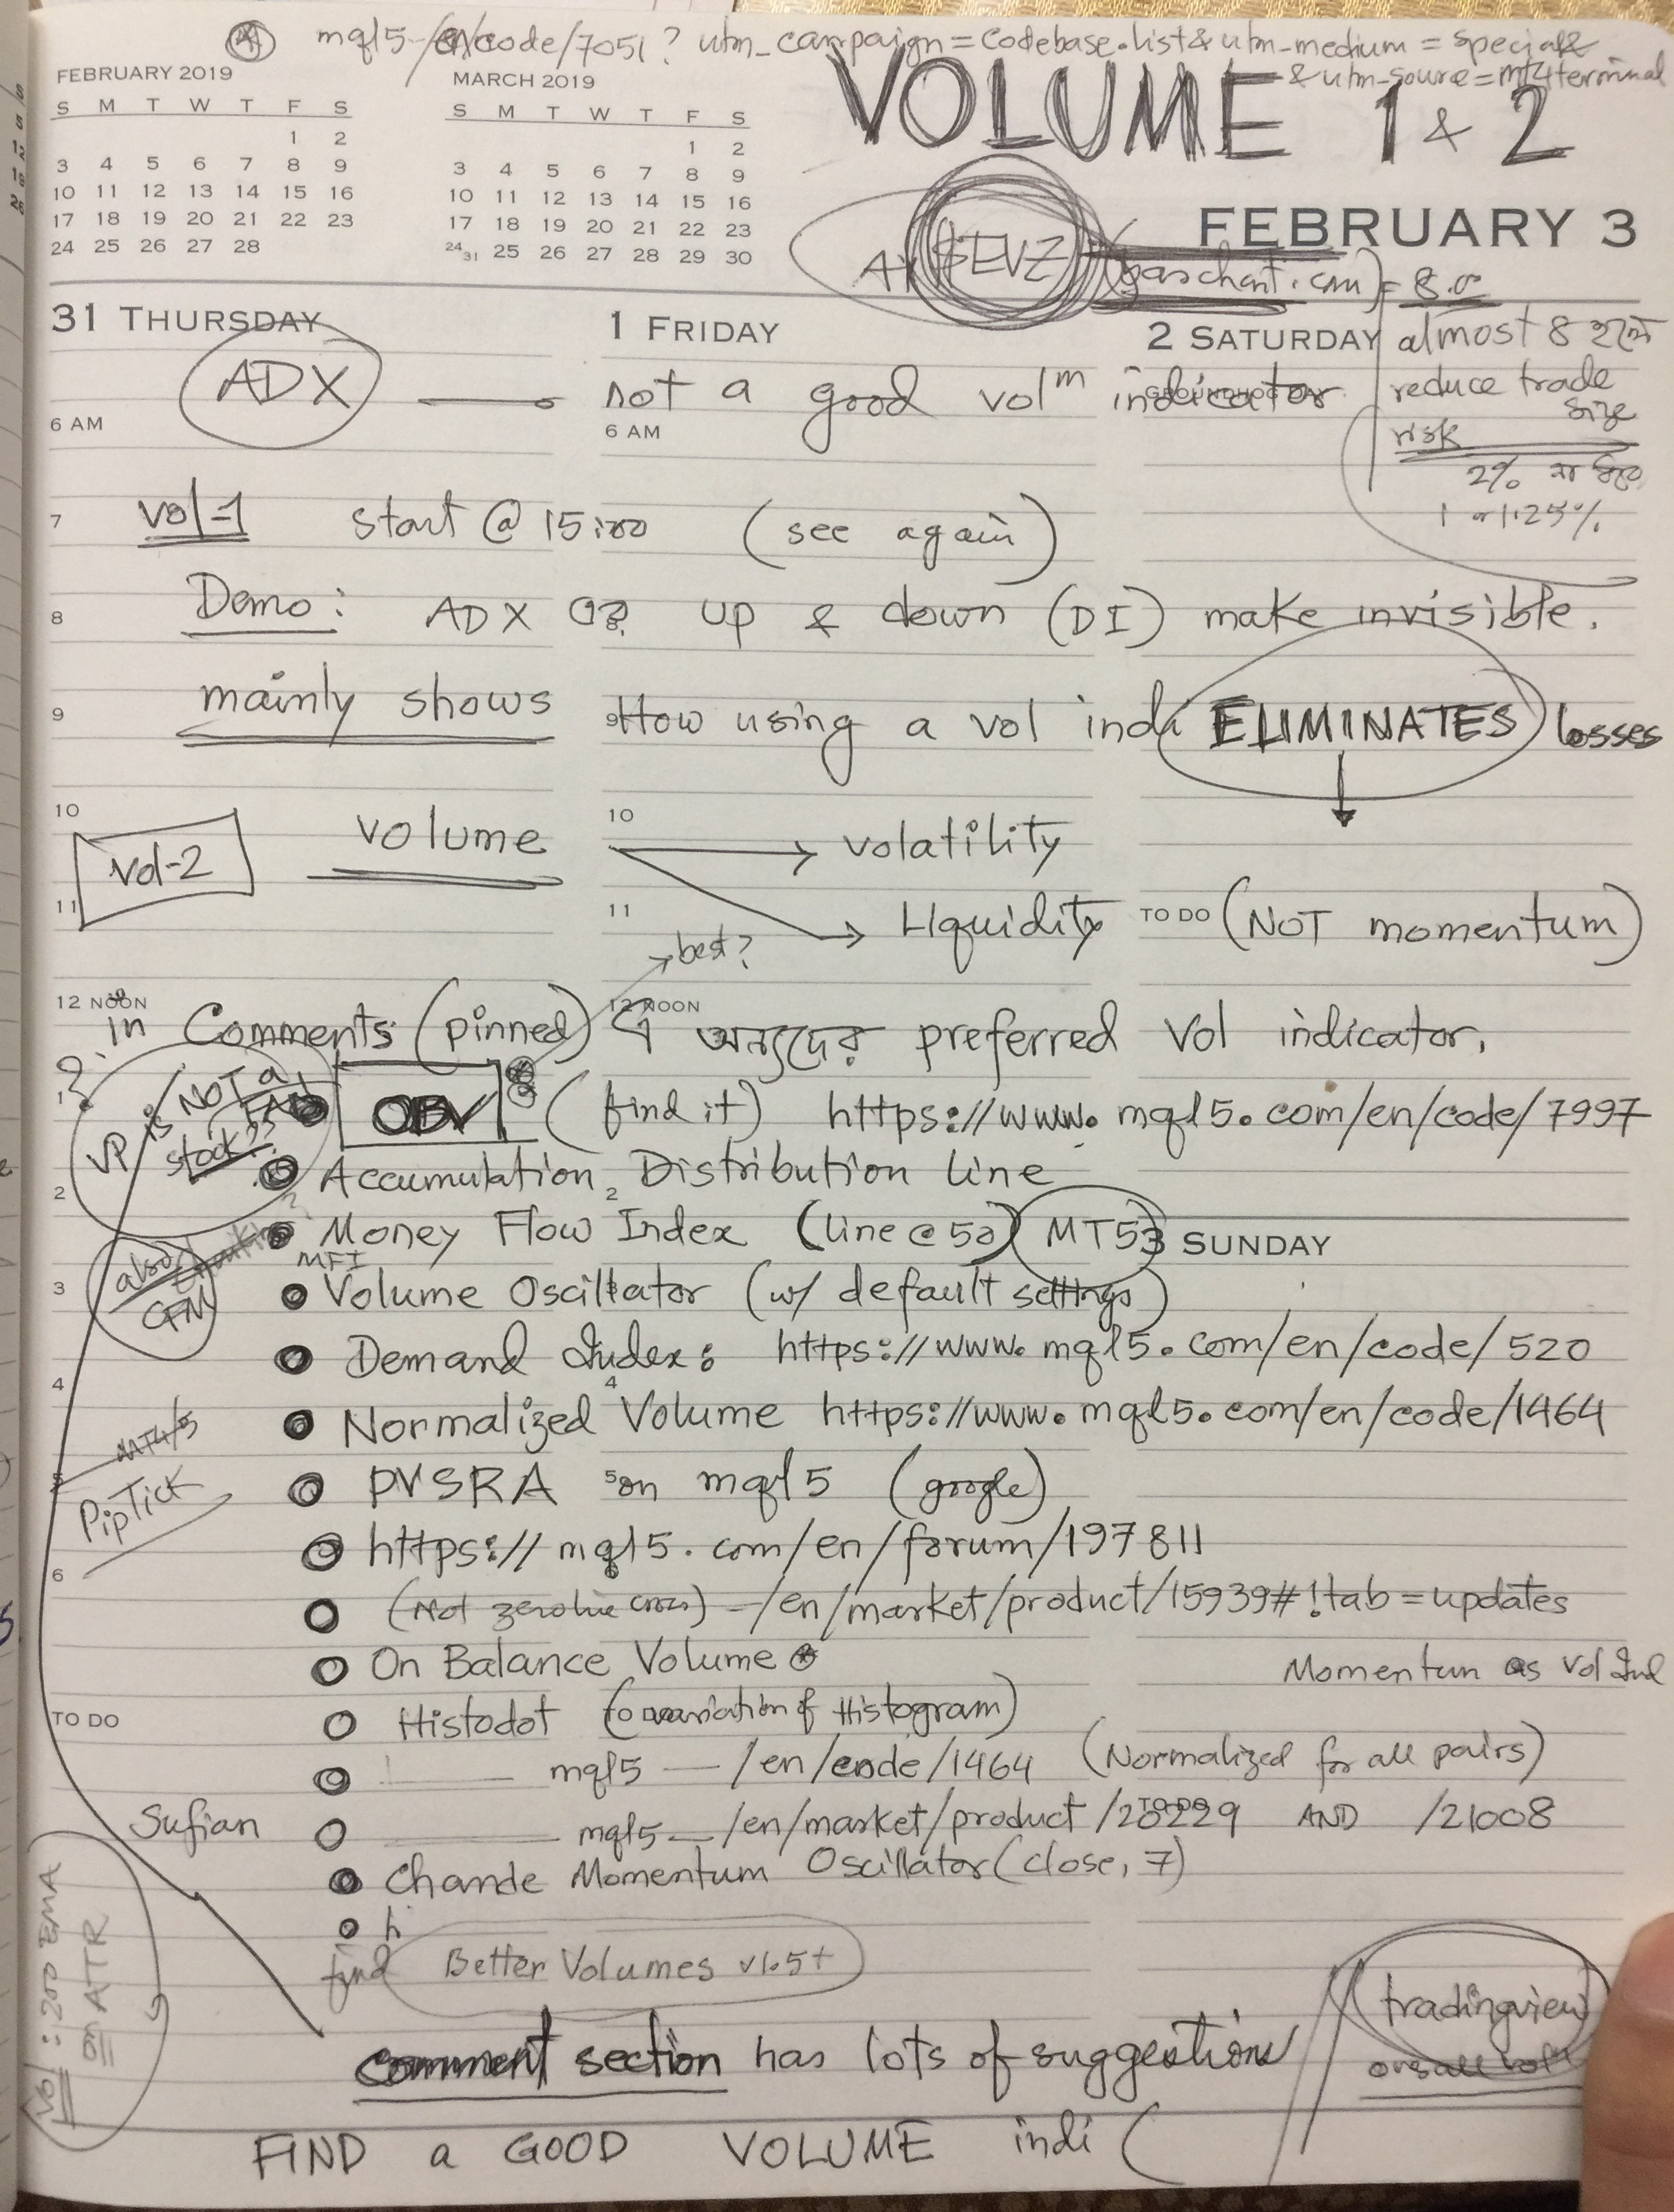 mql5-/en/code/7051? utm_campaign=codebase.list&utm_medium=special&
&utm_soure=mt4terminal
VOLUME 1 & 2
FEBRUARY 2019
S M T W T F S
1 2
3 4 5 6 7 8 9
10 11 12 13 14 15 16
17 18 19 20 21 22 23
24 25 26 27 28
MARCH 2019
S M T W T F S
1 2
3 4 5 6 7 8 9
10 11 12 13 14 15 16
17 18 19 20 21 22 23
24/31 25 26 27 28 29 30
FEBRUARY 3
$EVZ
31 THURSDAY
1 FRIDAY
2 SATURDAY
GROUNDHOG DAY
almost 8 হলে
reduce trade
size
risk
2% না
1 or 1.25%
ADX
not a good vol^m indicator
6 AM
6 AM
7
vol-1 start @ 15:00 (see again)
8
Demo: ADX এর up & down (DI) make invisible.
9
9
mainly shows How using a vol indi ELIMINATES losses
10
10
Vol-2 volume volatility
11
11
TO DO
Liquidity (NOT momentum)
best?
12 NOON
12 NOON
in Comments (pinned) এ অন্যদের preferred Vol indicator.
1
VP is NOT a
stock??
OBV (find it) https://www.mql5.com/en/code/7997
2
2
Accumulation Distribution line
Money Flow Index (line @ 50) MT5
MFI
3 SUNDAY
also
CFM
3
Volume Oscillator (w/ default settings)
Demand Index: https://www.mql5.com/en/code/520
4
4
Normalized Volume https://www.mql5.com/en/code/1464
MT4/5
PipTick
5
5
PVSRA on mql5 (google)
https://mql5.com/en/forum/197811
6
6
(Not zeroline cross) -/en/market/product/15939#!tab=updates
On Balance Volume
Momentum as Vol Ind
TO DO
Histodot (variation of Histogram)
mql5 — /en/code/1464 (Normalized for all pairs)
TO DO
Sufian
mql5 — /en/market/product/20229 AND /21008
Chande Momentum Oscillator (close, 7)
h
find Better Volumes v1.5+
Vol: 200 EMA
on ATR
comment section has lots of suggestions
tradingview
FIND a GOOD VOLUME indi (